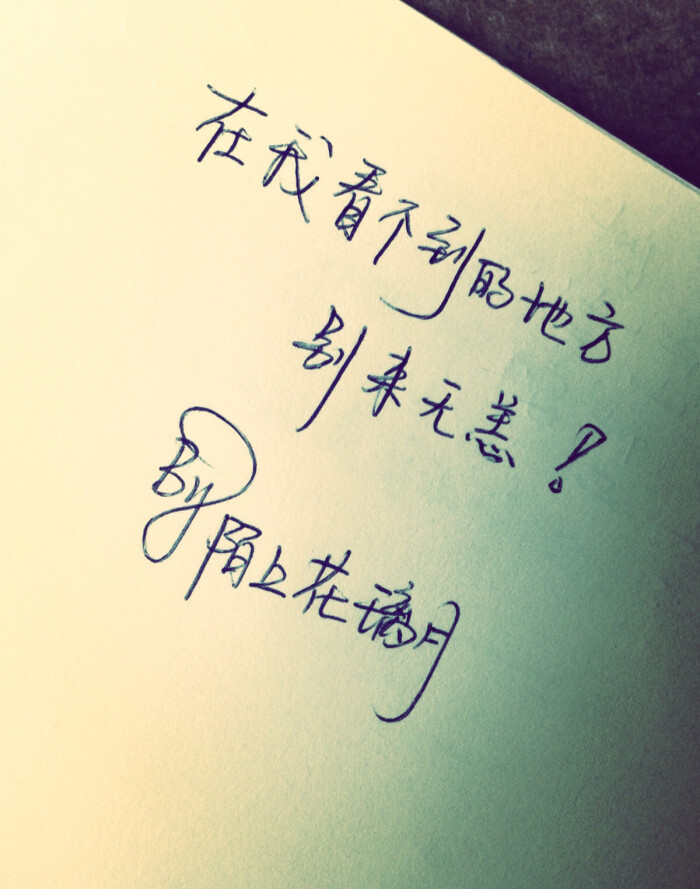 在我看不到的地方
别来无恙！
By
陌上花璃月